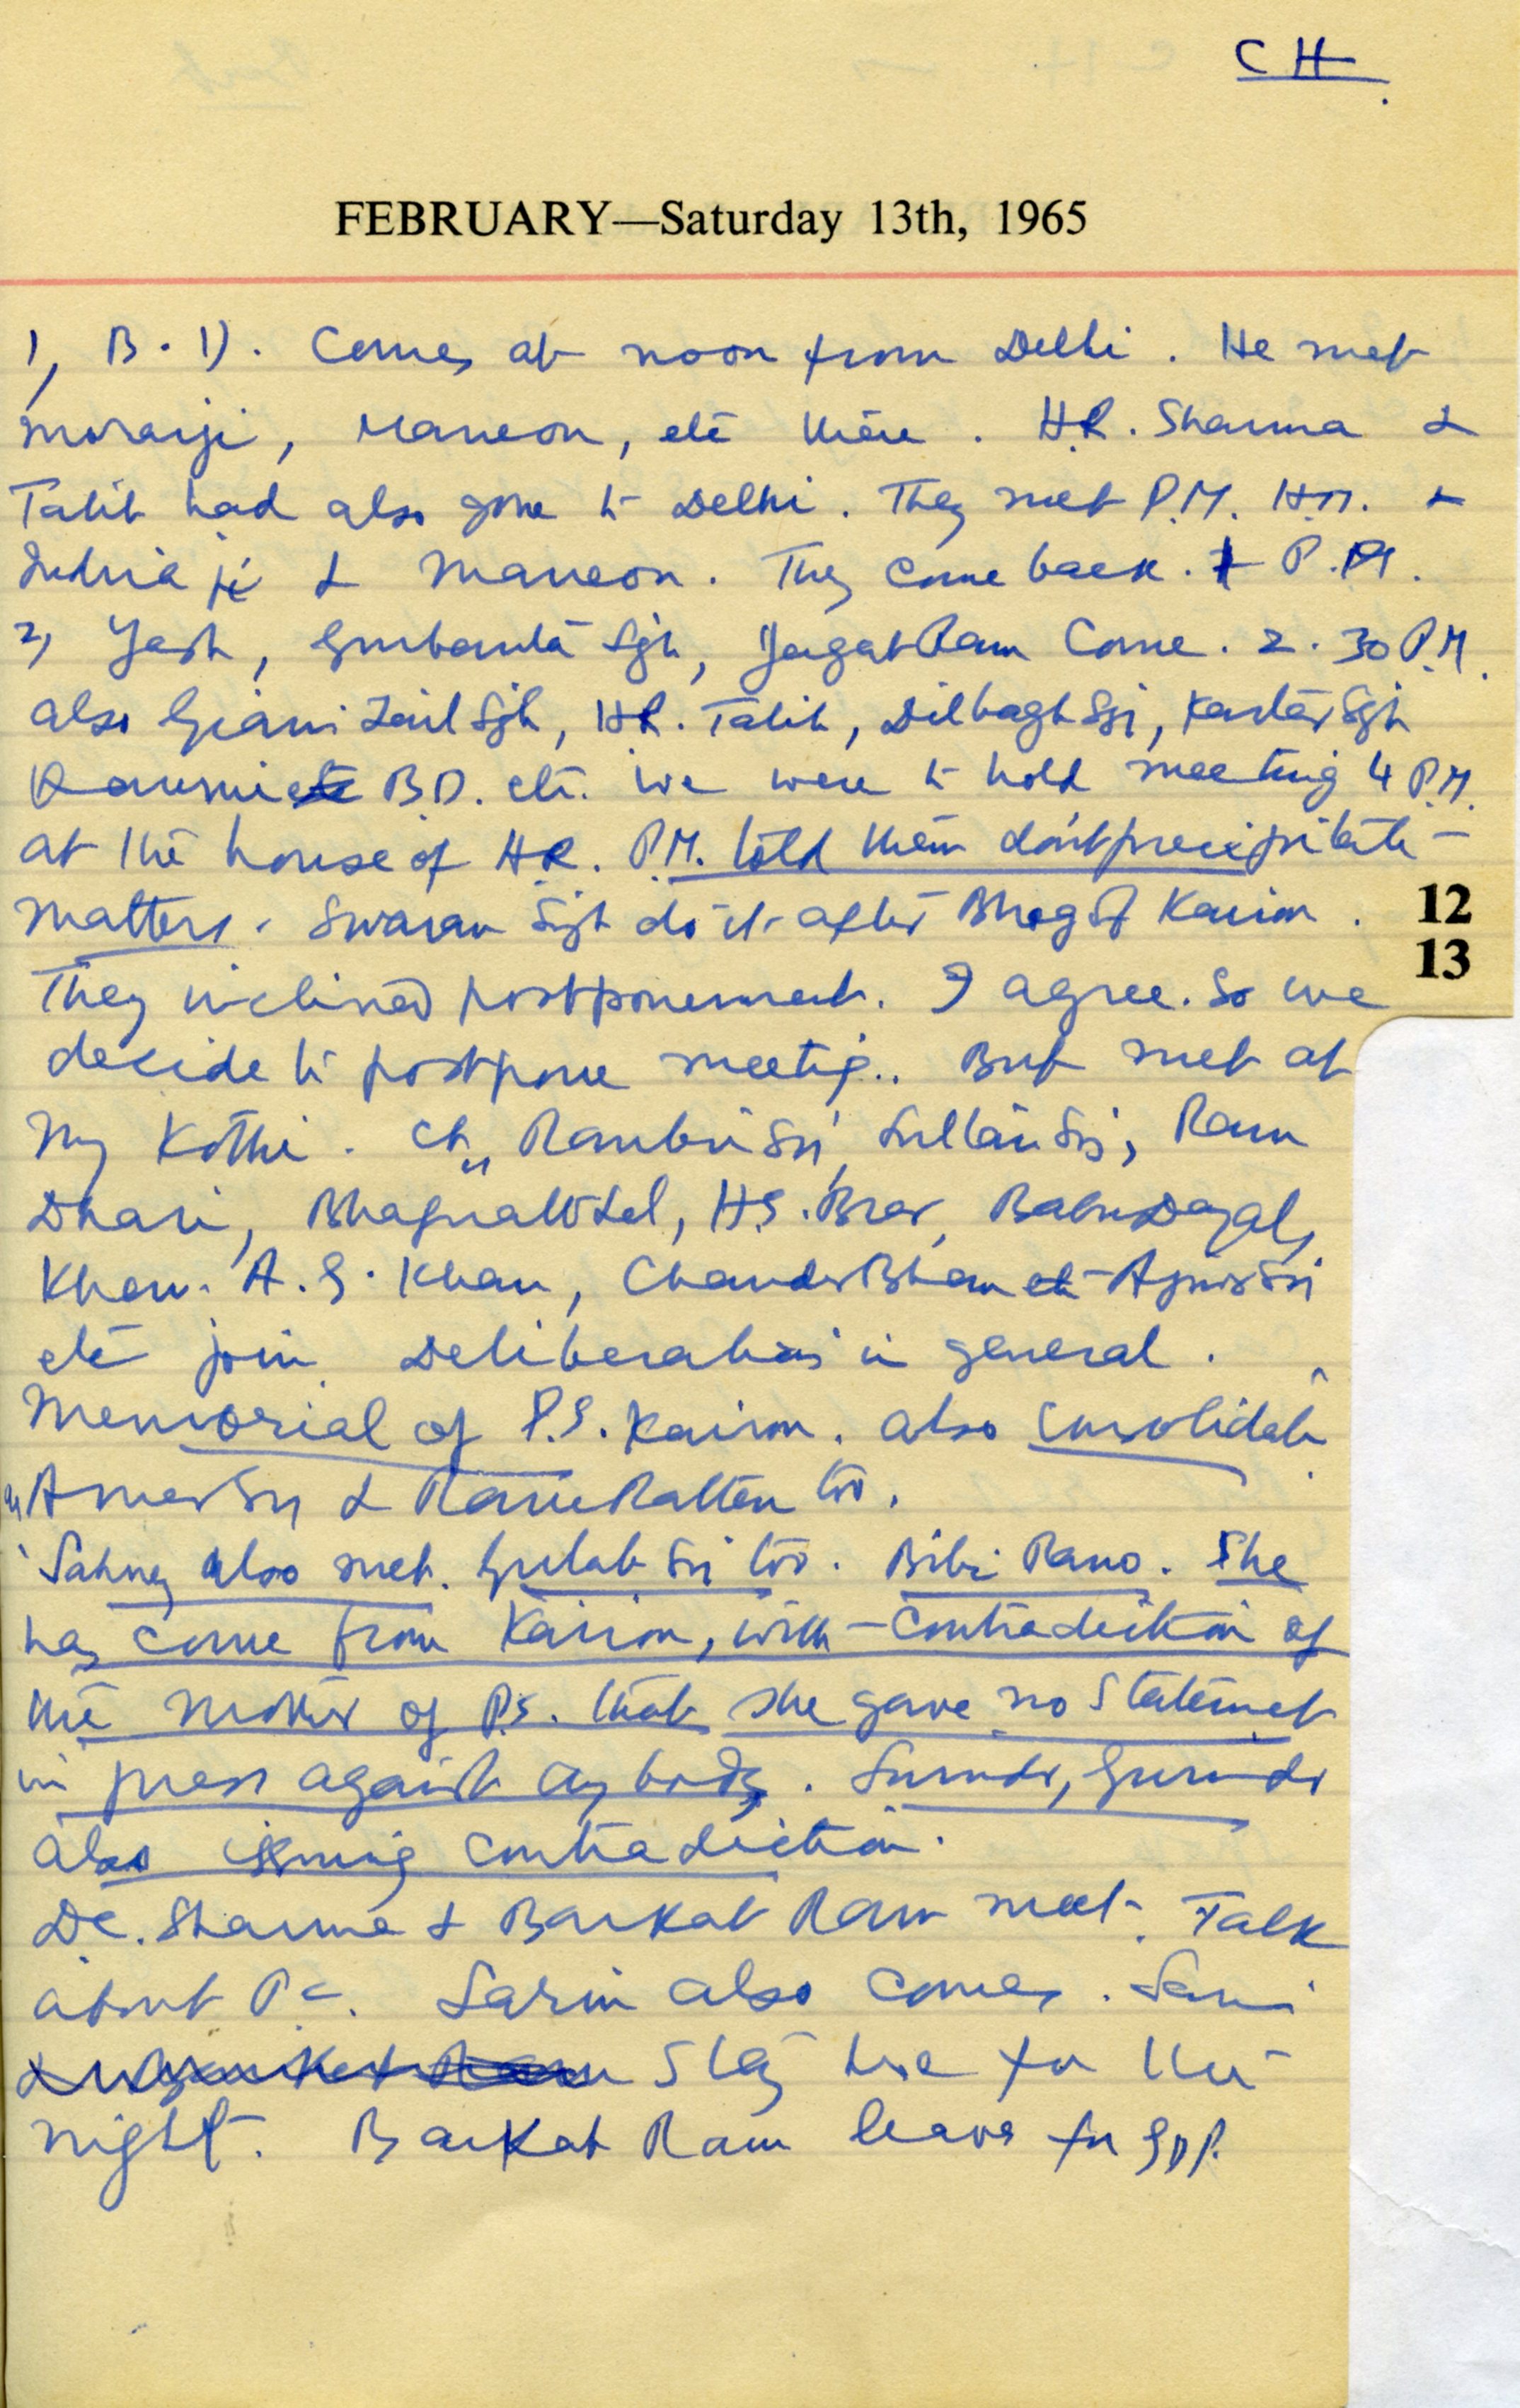 CH.
FEBRUARY—Saturday 13th, 1965
1, B.D. Comes at noon from Delhi. He met
Morarji, Maneon, etc there. H.R. Sharma &
Talib had also gone to Delhi. They met P.M. H.M. &
Indiraji & Maneon. They come back. P.M.
2, Yash, Gurbanta Sgh, Jagat Ram Come. 2.30 P.M.
also Giani Zail Sgh, H.R. Talib, Dilbagh Sgi, Kartar Sgh
B.D. etc. We were to hold meeting 4 P.M.
at the house of H.R. P.M. told them don't precipitate
matters. Swaran Sigh do it after Bhog of Kairon.
12
13
They inclined postponement. I agree. So we
decide to postpone meetig.. But met at
my Kothi. Ch. Ranbir Sgi, Ram
Dhari, Lal, H.S. Brar, Babu Dayal,
Khan. A.G. Khan, Chander Bhan etc
etc join. Deliberations in general.
Memorial of P.S. Kairon. also consolidate
& too.
Sahney also met. Gulab Sgi too. Bibi Rano. She
has come from Kairon, with contradiction of
the mother of P.S. that she gave no Statemet
in press against anybody. Surinder, Gurinder
also issuing contradiction.
D.C. Sharma & Barkat Ram meet. Talk
about P.C. Sarin also comes.
Stay here for the
night. Barkat Ram leaves for GDP.